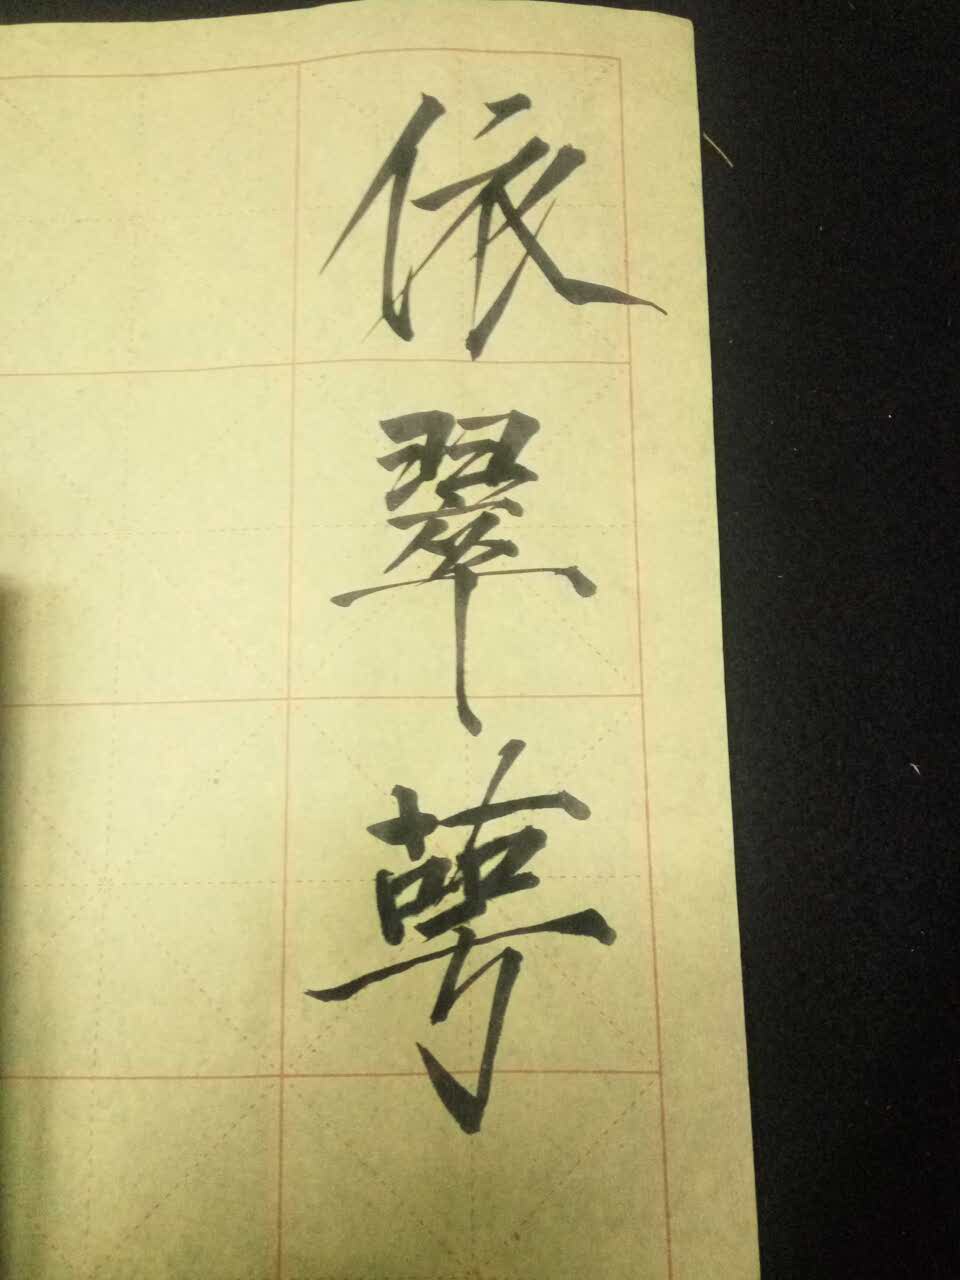 依翠萼